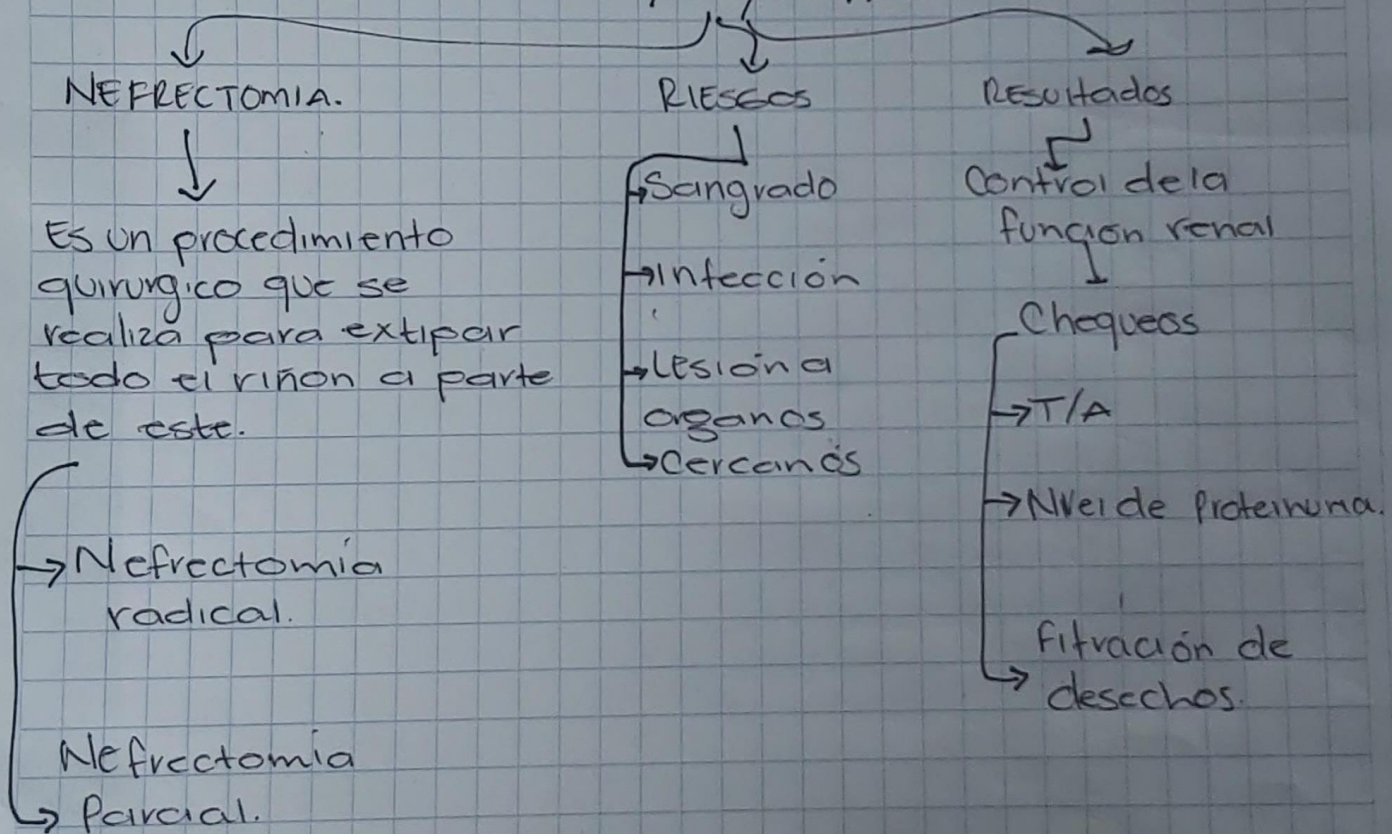 NEFRECTOMIA.
Es un procedimiento
quirurgico que se
realiza para extipar
todo el riñon a parte
de este.
Nefrectomía
radical.
Nefrectomia
Parcial.
RIESGOS
Sangrado
Infección
Lesión a
organos
Cercanos
Resultados
Control de la
función renal
Chequeos
T/A
Nivel de Proteinuria.
Fitración de
desechos.